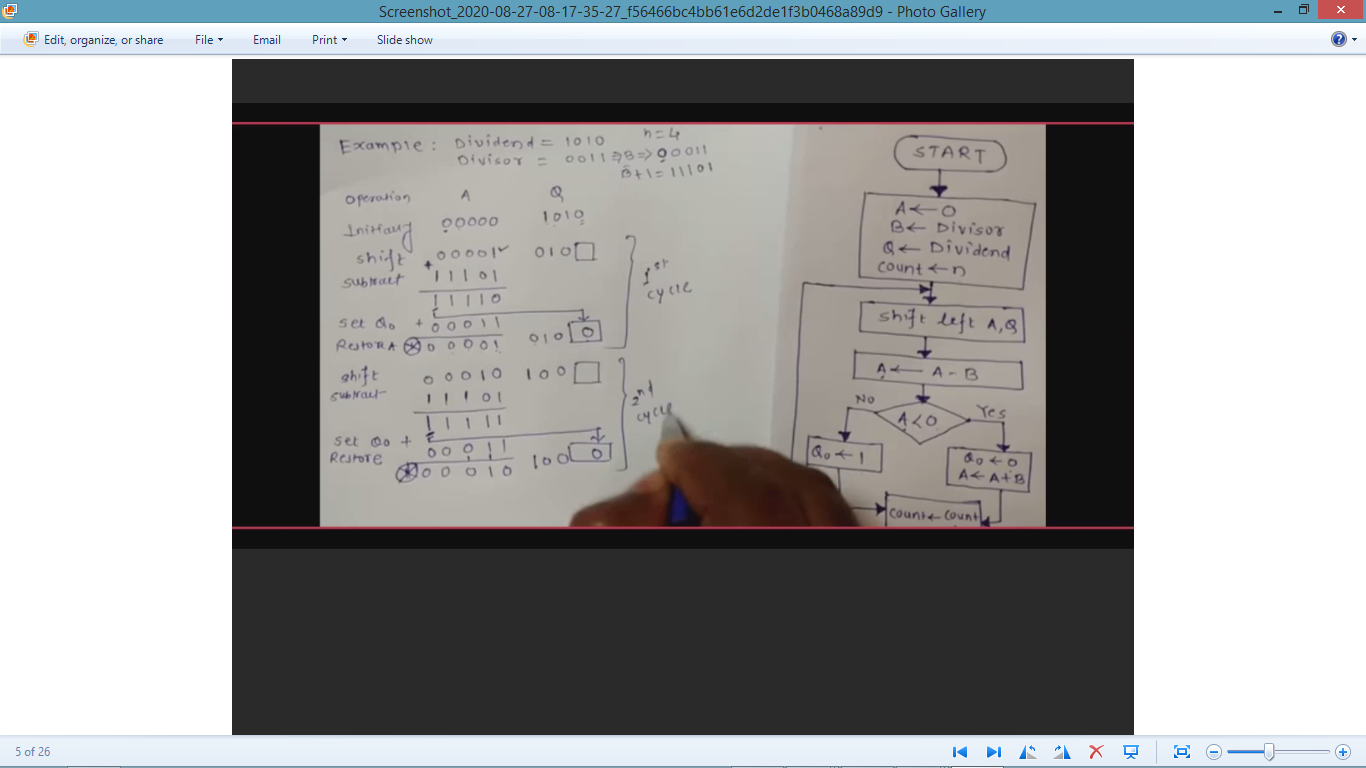 Screenshot_2020-08-27-08-17-35-27_f56466bc4bb61e6d2de1f3b0468a89d9 - Photo Gallery
Edit, organize, or share File Email Print Slide show
Example : Dividend = 1010 n=4
Divisor = 0011 ⇒B⇒ 00011
B̄+1=11101
operation A Q
Initially 00000 1010
shift 00001 010
subtract + 11101
11110
set Q₀ + 00011
Restore A 00001 010 0
1st cycle
shift 00010 100
subtract 11101
11111
set Q₀ + 00011
Restore 00010 100 0
2nd cycle
START
A ← 0
B ← Divisor
Q ← Dividend
count ← n
shift left A,Q
A ← A - B
No A<0 Yes
Q₀ ← 1
Q₀ ← 0
A ← A+B
count ← count
5 of 26